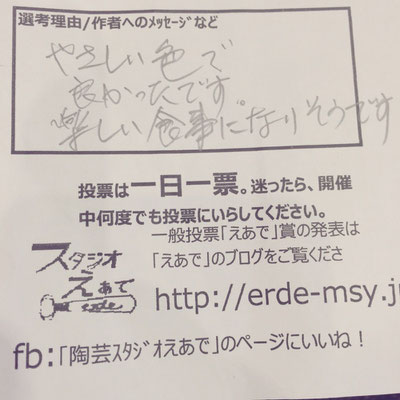 選考理由/作者へのﾒｯｾｰｼﾞなど
やさしい色で
良かったです。
楽しい食事になりそうです
投票は一日一票。迷ったら、開催
中何度でも投票にいらしてください。
一般投票「えあで」賞の発表は
「えあで」のブログをご覧くださ
スタジオ
えあで
http://erde-msy.j
fb:「陶芸ｽﾀｼﾞｵえあで」のページにいいね！